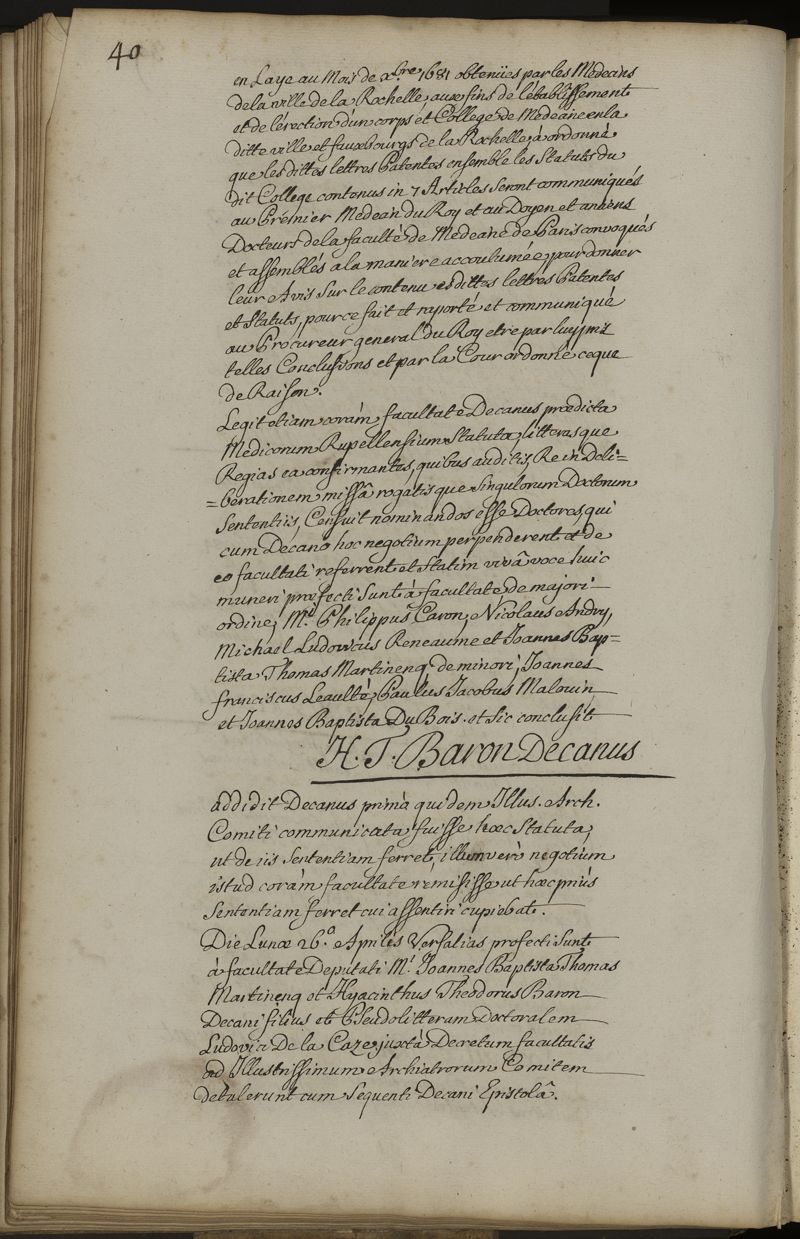 40
en Laye au Mois de xbre 1681 obtenües par les Medecins
de la ville de la Rochelle, aux fins de l'établissement
et de lérection d'un corps et College de Medecine en la
ditte ville et fauxbourgs de la Rochelle, à ordonné
que les dittes lettres Patentes ensemble les Statuts du
dit College contenus in 7 Articles seront communiqués
au Premier Medecin du Roy et au Doyen et anciens
Docteurs de la faculté de Medecine de Paris convoqués
et assemblés a la maniere accoutumée, pour donner
leur Avis sur le contenu esdittes lettres Patentes
et Statuts, pour ce fait et raporté et communiqué
au Procureur general du Roy etre par luy pris
telles Conclusions et par la Cour ordonné ce que
de Raison.
Legit etiam coràm facultate Decanus prædicta
Medicorum Rupellensium Statuta, litterasque
Regias ea confirmantes, quibus auditis, Re in Deli=
=berationem missâ rogatisque singulorum Doctorum
Sententiis, Censuit nominandos esse Doctores, qui
cum Decano hoc negotium perpenderent et de
eo facultati referrent, et statim vivâ voce huic
muneri præfecti sunt à facultate, de majori
ordine, Mri Philippus Caron, Nicolaus Andry,
Michael Ludovicus Reneaume et Joannes Bap=
tista Thomas Martinenq, de minori, Joannes
franciscus Leaulté, Paulus Jacobus Malouin
et Joannes Baptista Du Bois. et sic conclusit
H. T. Baron Decanus
addidit Decanus primà quidem Illus. Arch.
Comiti communicata fuisse hæc Statuta,
ut de iis Sententiam ferret, illum verò negotium
istud coràm facultate remisisse ut hæc priùs
Sententiam ferret cui assentiri cupiebat.
Die Lunæ 26.a Aprilis Versalias profecti sunt
à facultate Deputati Mri Joannes Baptista Thomas
Martinenq et Hyacinthus Theodorus Baron
Decani filius et Pseudolitteram Doctoralem
Ludovici De la Caze juxtà Decretum facultatis
ad Illustrissimum Archiatrorum Comitem
detulerunt cum Sequenti Decani Epistolâ.